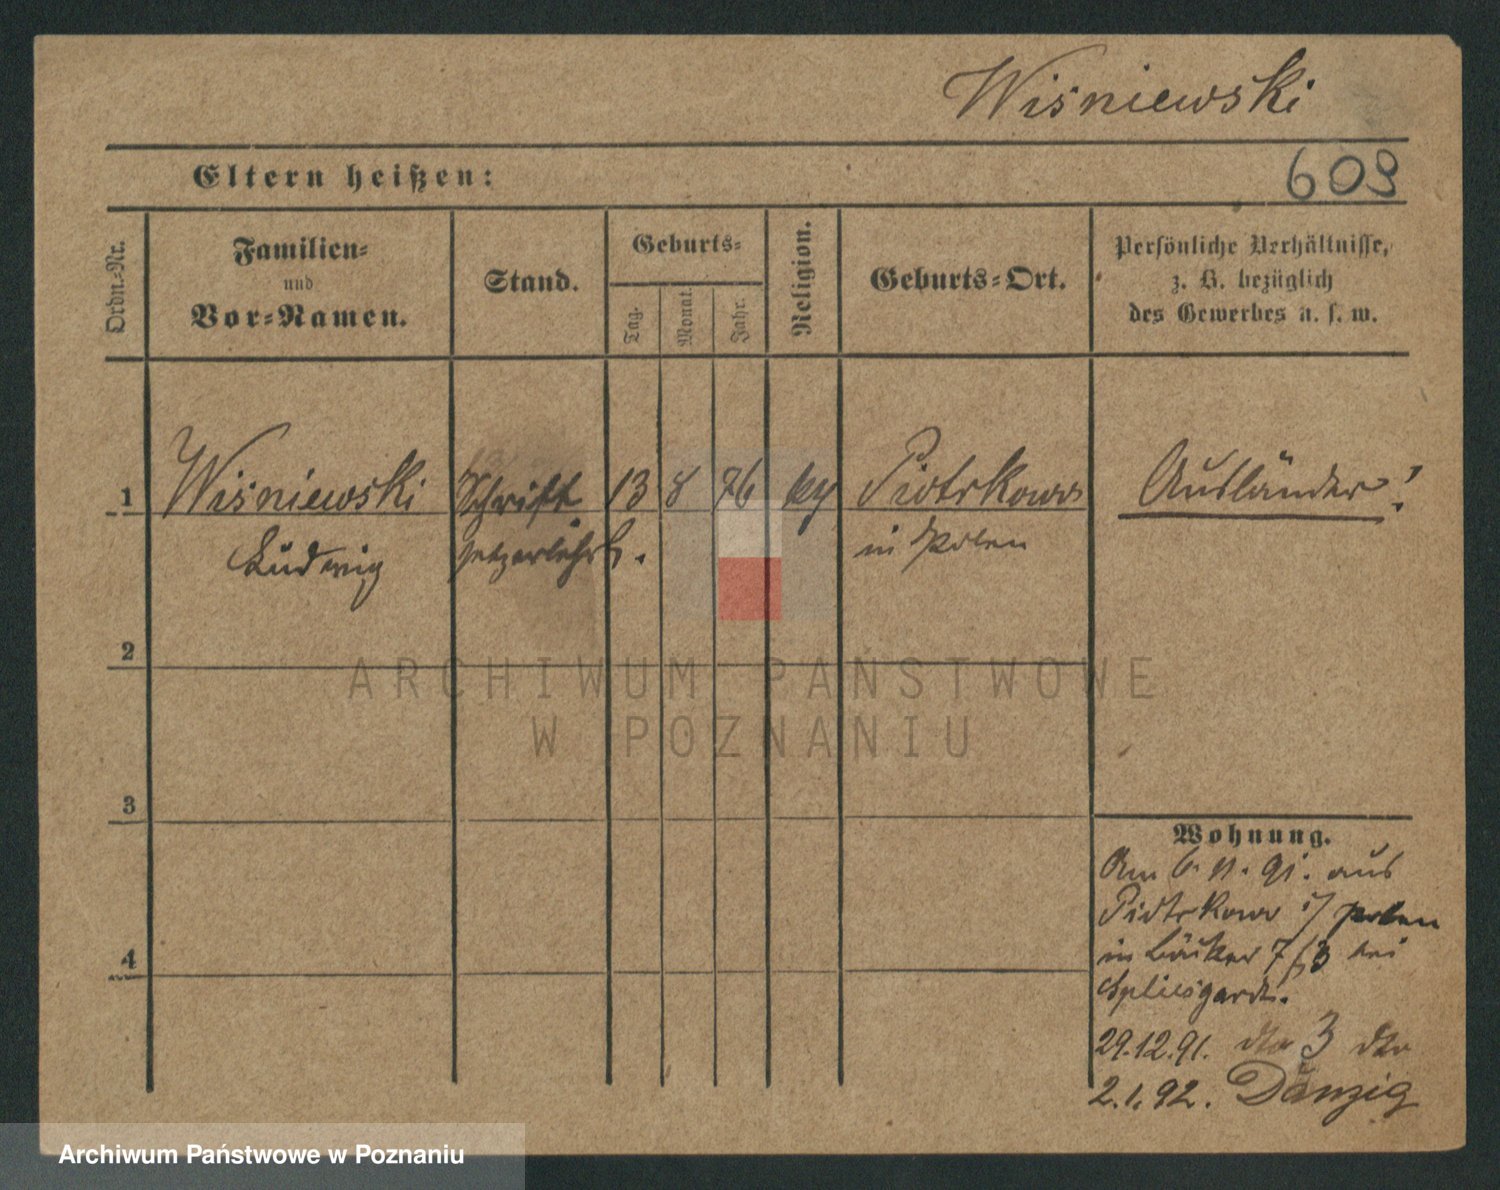 Wiśniewski
Eltern heißen:
609
Ordn.-Nr.
Familien-
und
Vor-Namen.
Stand.
Geburts-
Tag.
Monat.
Jahr.
Religion.
Geburts-Ort.
Persönliche Verhältnisse,
z. B. bezüglich
des Gewerbes u. s. w.
1 Wiśniewski Schrift 13 8 76 Piotrkowo Ausländer!
Ludwig setzerlehrl. in Polen
2
ARCHIWUM PAŃSTWOWE
W POZNANIU
3
Wohnung.
Am 6. 11. 91. aus
Piotrkowo i/ Polen
in 7/8 bei
Spliesgardt.
4
29.12.91. dto 3 dto
2.1.92. Danzig
Archiwum Państwowe w Poznaniu